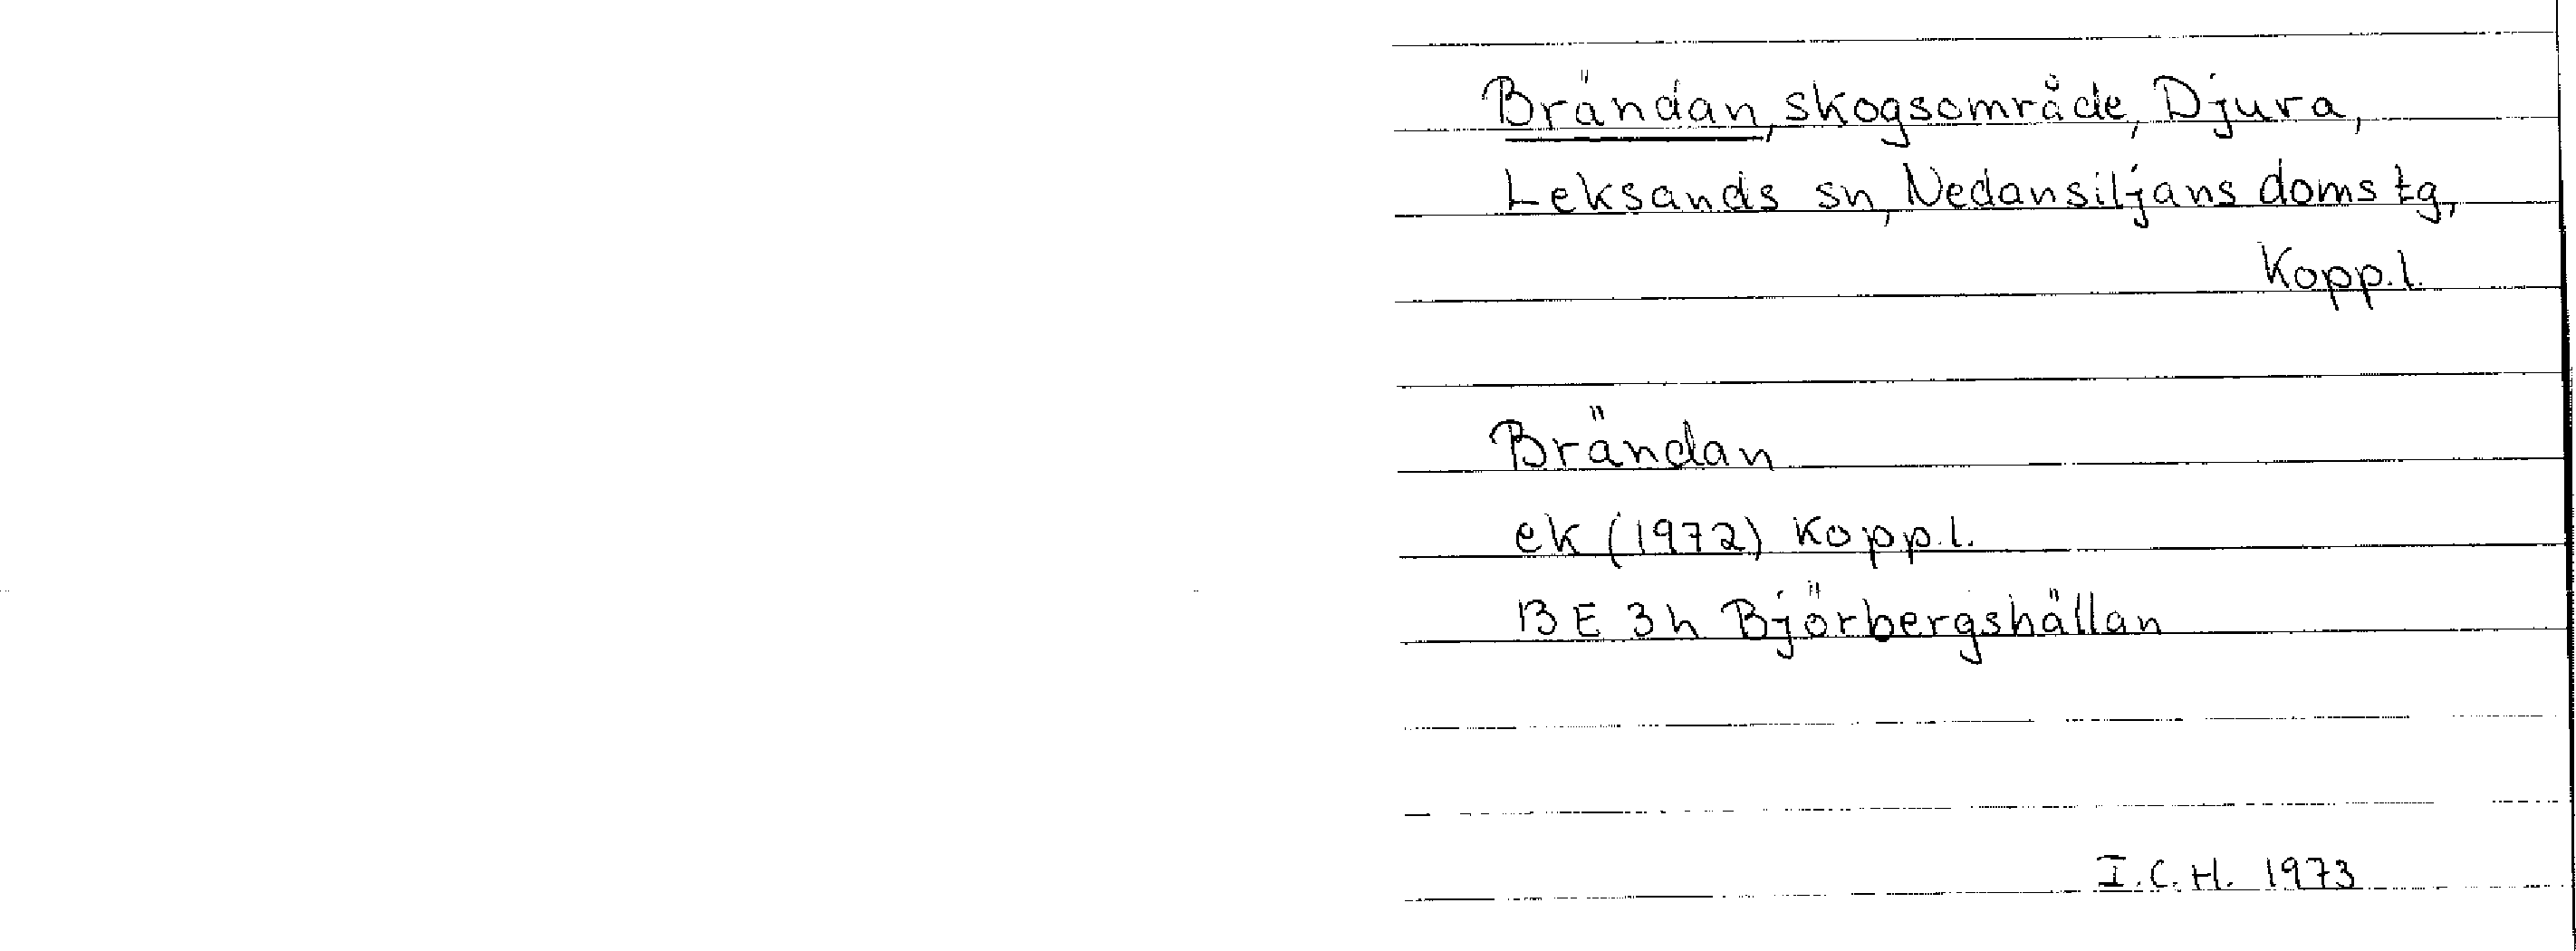 Brändan, skogsområde, Djura,
Leksands sn, Nedansiljans domstg,
Kopp.l.
Brändan
ek (1972) Kopp.l.
13 E 3h Björbergshällan
I.C.H. 1973